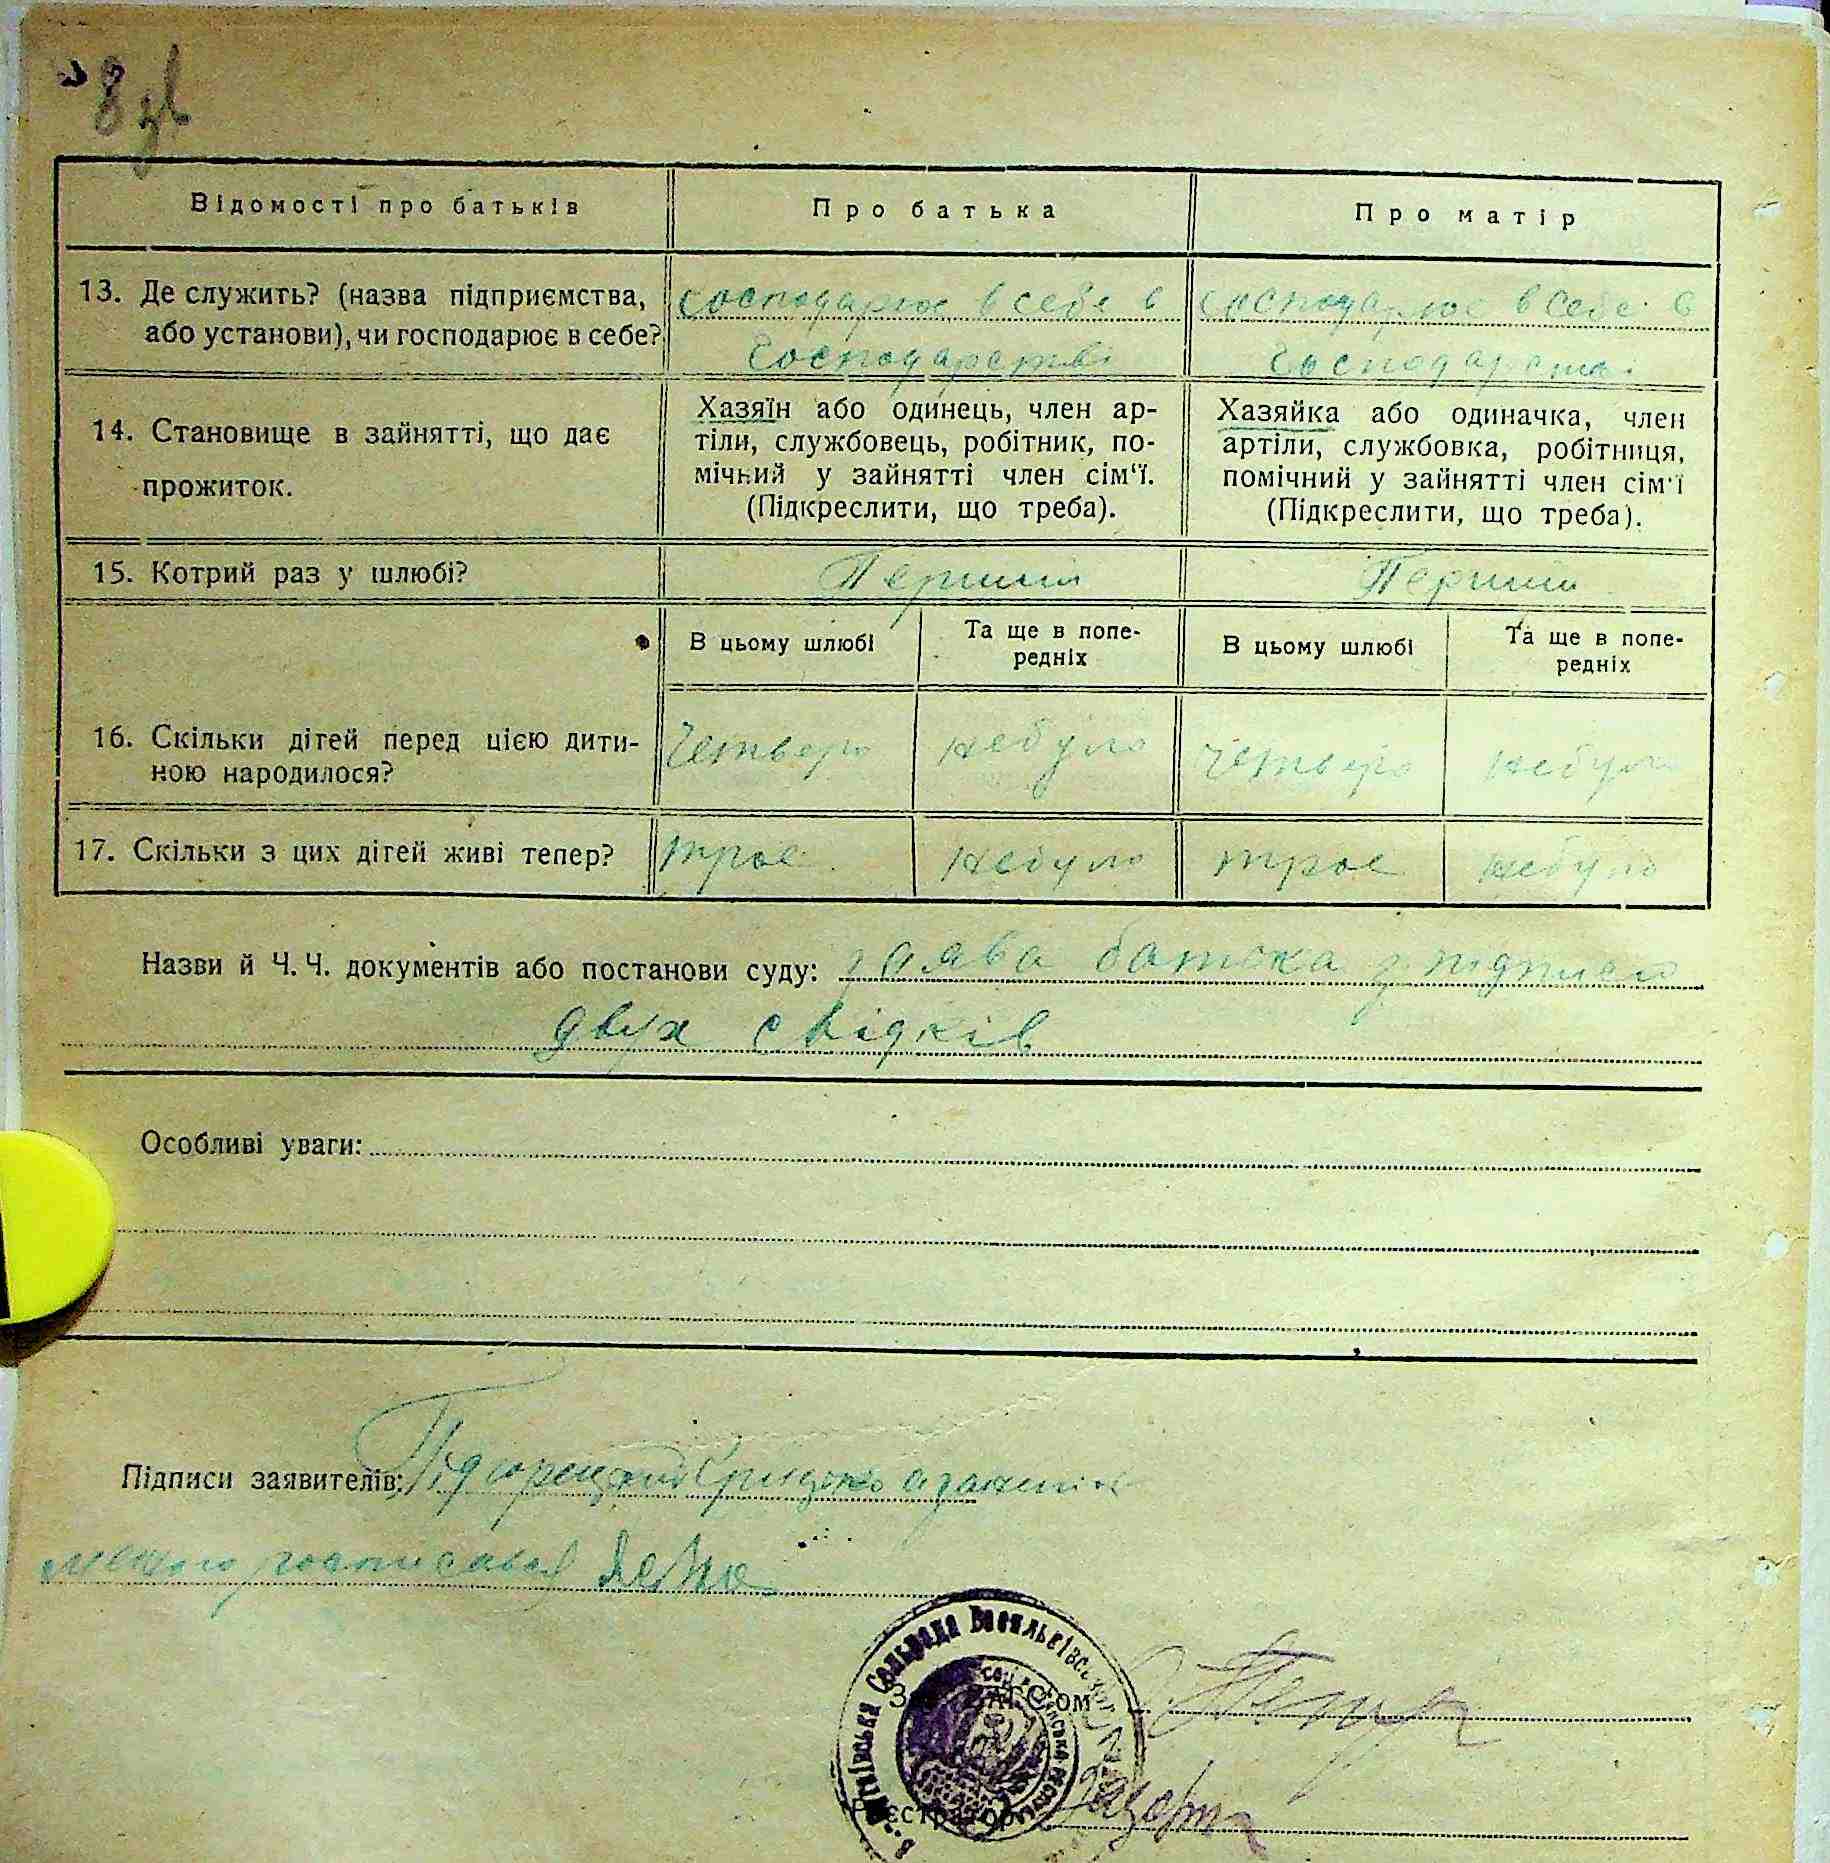 8 зв
Відомості про батьків
Про батька
Про матір
13. Де служить? (назва підприємства,
або установи), чи господарює в себе?
господарює в себе в
господарстві
господарює в себе в
господарстві
14. Становище в зайнятті, що дає
прожиток.
Хазяїн або одинець, член ар-
тіли, службовець, робітник, по-
мічний у зайнятті член сім'ї.
(Підкреслити, що треба).
Хазяйка або одиначка, член
артіли, службовка, робітниця,
помічний у зайнятті член сім'ї
(Підкреслити, що треба).
15. Котрий раз у шлюбі?
Перший
Перший
В цьому шлюбі
Та ще в попе-
редніх
В цьому шлюбі
Та ще в попе-
редніх
16. Скільки дітей перед цією дити-
ною народилося?
Четверо
небуло
четверо
небуло
17. Скільки з цих дітей живі тепер?
троє
небуло
троє
небуло
Назви й Ч.Ч. документів або постанови суду: заява батька з підписом
двух свідків
Особливі уваги:
Підписи заявителів: Підгорецкий Грицько а за
росписався
Сельрада Васильківського
Зав. ЗАГС'ом
Реєстратор